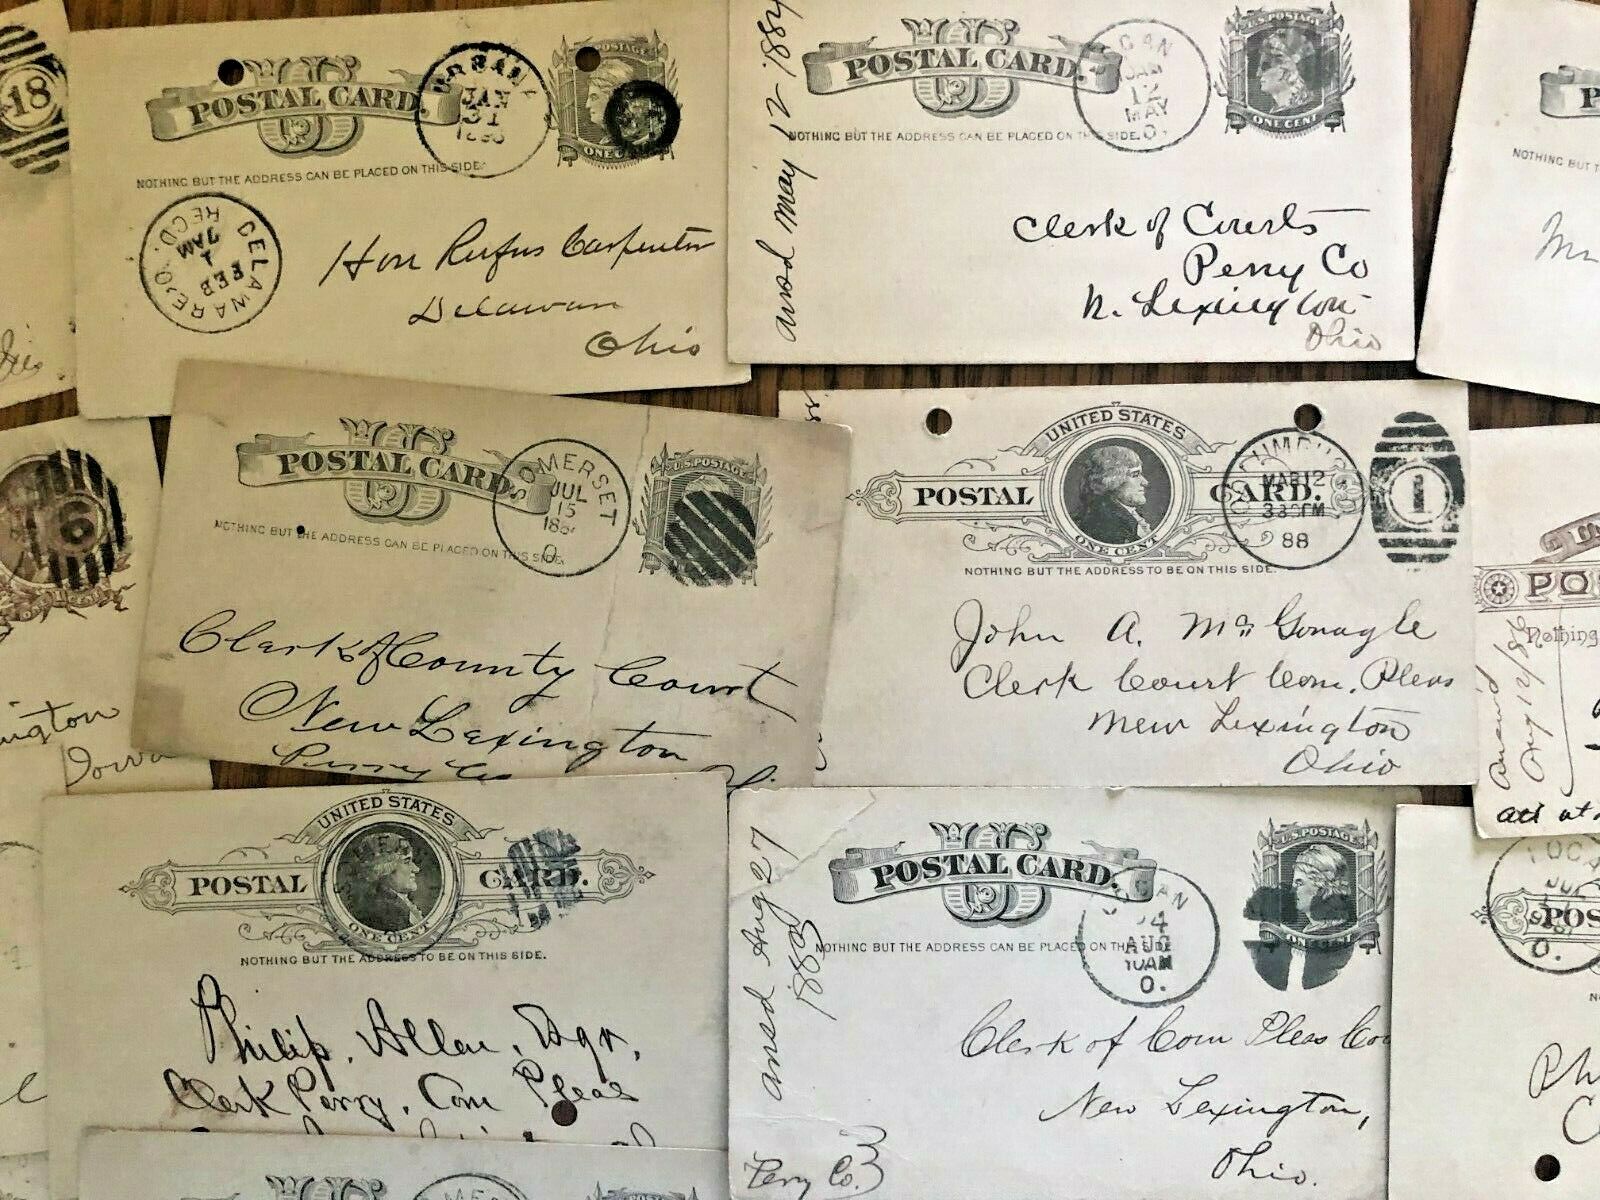 18
POSTAL CARD.
URBANA
JAN
31
U.S. POSTAGE
ONE CENT
NOTHING BUT THE ADDRESS CAN BE PLACED ON THIS SIDE.
DELAWARE, O.
REC'D.
FEB
1
7AM
Hon Rufus Carpenter
Delaware
Ohio
ansd May 12 1884
POSTAL CARD.
LOGAN
12
MAY
O.
U.S. POSTAGE
ONE CENT
NOTHING BUT THE ADDRESS CAN BE PLACED ON THIS SIDE.
Clerk of Courts
Perry Co
N. Lexington
Ohio
P
NOTHING BUT T
6
ington
Iowa
POSTAL CARD.
SOMERSET
JUL
15
188
O.
U.S. POSTAGE
NOTHING BUT THE ADDRESS CAN BE PLACED ON THIS SIDE.
Clerk of County Court
New Lexington
Perry Co
UNITED STATES
POSTAL CARD.
ONE CENT
COLUMBUS
MAR 12
330PM
88
O
1
NOTHING BUT THE ADDRESS TO BE ON THIS SIDE.
John A. McGonagle
Clerk Court Com. Pleas
New Lexington
Ohio
PO
Nothing
UNITED STATES
POSTAL CARD.
ONE CENT
NOTHING BUT THE ADDRESS TO BE ON THIS SIDE.
Philip. Allen, Esqr.
Clerk Perry. Com Pleas
ansd Aug 27
1883
POSTAL CARD.
LOGAN
AUG
10AM
O.
U.S. POSTAGE
ONE CENT
NOTHING BUT THE ADDRESS CAN BE PLACED ON THIS SIDE
Clerk of Com Pleas Cou
New Lexington,
Ohio.
Perry Co.
LOGAN
O.
POS
Ph
C